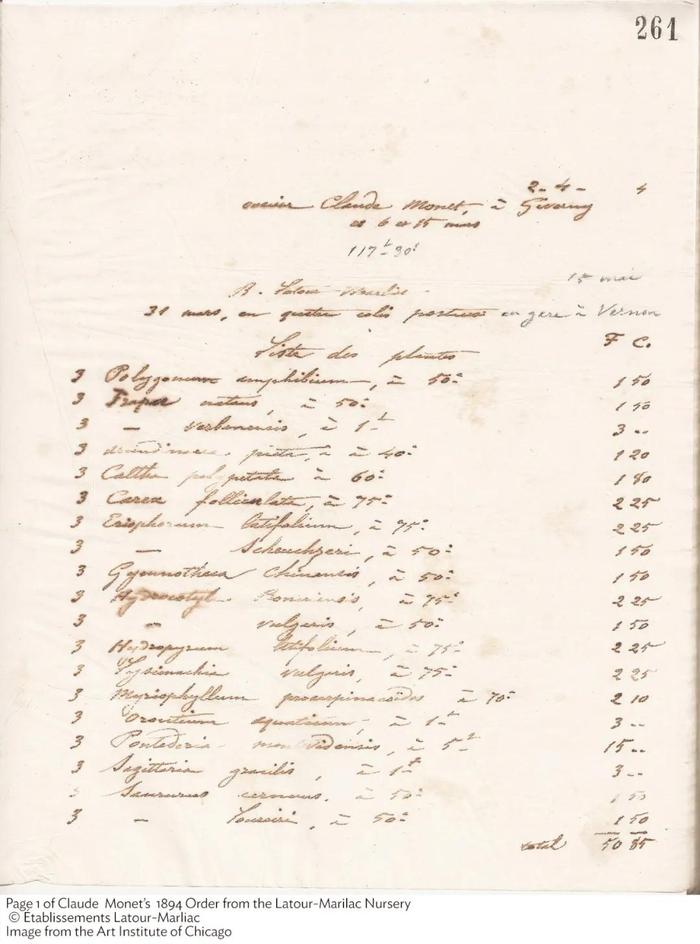 261
2-4- 4
Claude Monet, à Giverny
et 6 et 15 mars
117f-30c
15 mai
B. Latour-Marliac
31 mars, en quatre colis postaux en gare à Vernon
Liste des plantes F C.
3 Polygonum amphibium, à 50c 1 50
3 Trapa natans, à 50c 1 50
3 — verbanensis, à 1f 3 --
3 à 40c 1 20
3 Caltha polypetala à 60c 1 80
3 Carex folliculata, à 75c 2 25
3 Eriophorum latifolium, à 75c 2 25
3 — Scheuchzeri, à 50c 1 50
3 Gymnotheca Chinensis, à 50c 1 50
3 Hydrocotyle Bonariensis, à 75c 2 25
3 " vulgaris, à 50c 1 50
3 Hydropyrum latifolium, à 75c 2 25
3 Lysimachia vulgaris, à 75c 2 25
3 Myriophyllum proserpinacoïdes à 70c 2 10
3 Orontium aquaticum, à 1f 3 --
3 Pontederia montevidensis, à 5f 15 --
3 Sagittaria gracilis, à 1f 3 --
3 Saururus cernuus, à 50c 1 50
3 — Loureiri, à 50c 1 50
total 50 85
Page 1 of Claude Monet's 1894 Order from the Latour-Marilac Nursery
© Etablissements Latour-Marliac
Image from the Art Institute of Chicago